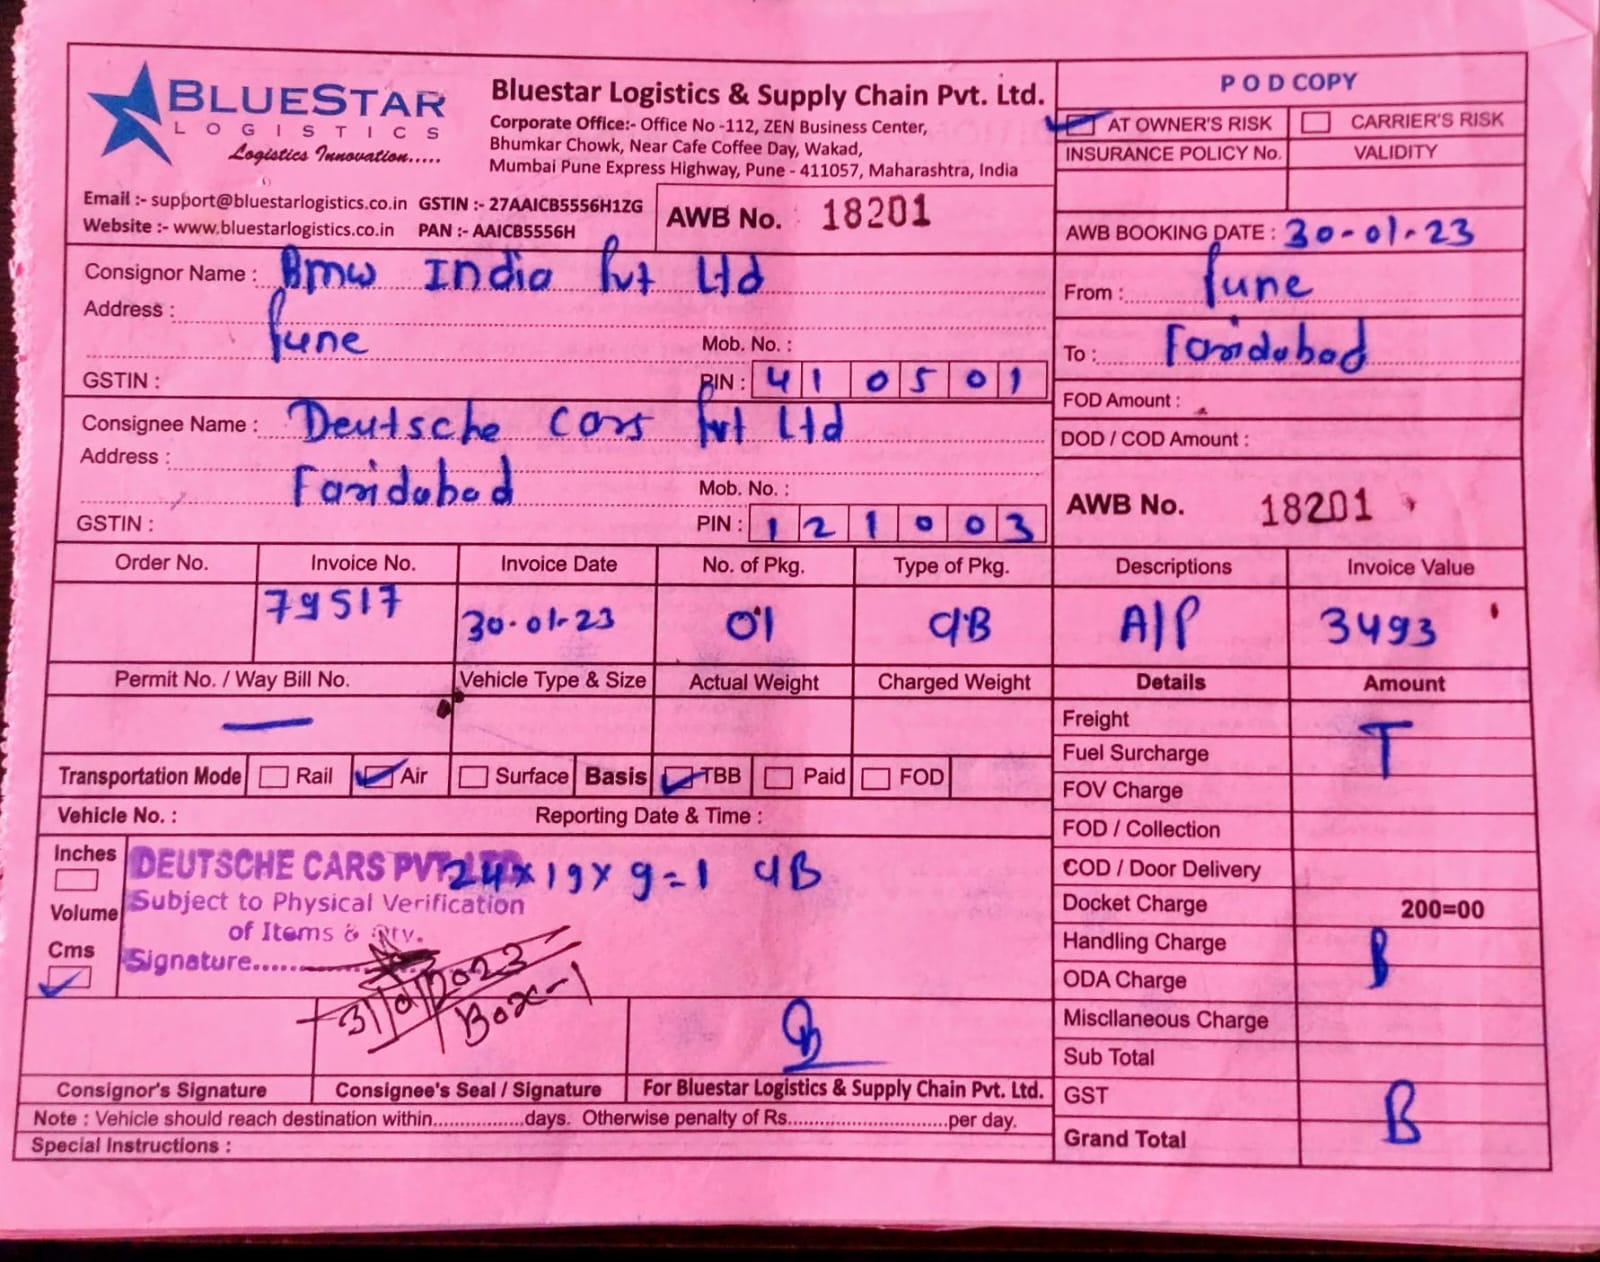 BLUESTAR
LOGISTICS
Logistics Innovation.....
Bluestar Logistics & Supply Chain Pvt. Ltd.
Corporate Office:- Office No -112, ZEN Business Center,
Bhumkar Chowk, Near Cafe Coffee Day, Wakad,
Mumbai Pune Express Highway, Pune - 411057, Maharashtra, India
Email :- support@bluestarlogistics.co.in GSTIN :- 27AAICB5556H1ZG
Website :- www.bluestarlogistics.co.in PAN :- AAICB5556H
AWB No. 18201
POD COPY
AT OWNER'S RISK CARRIER'S RISK
INSURANCE POLICY No. VALIDITY
AWB BOOKING DATE : 30-01-23
Consignor Name : Bmw India Pvt Ltd
Address :
Pune
Mob. No. :
GSTIN : PIN : 410501
From : Pune
To : Faridabad
FOD Amount :
DOD / COD Amount :
Consignee Name : Deutsche Cars Pvt Ltd
Address :
Faridabad
Mob. No. :
GSTIN : PIN : 121003
AWB No. 18201
Order No. Invoice No. Invoice Date No. of Pkg. Type of Pkg. Descriptions Invoice Value
79517 30-01-23 01 CB A/P 3493
Permit No. / Way Bill No. Vehicle Type & Size Actual Weight Charged Weight Details Amount
—
Transportation Mode Rail Air Surface Basis TBB Paid FOD
Vehicle No. : Reporting Date & Time :
Inches
Volume
Cms
DEUTSCHE CARS PVT. LTD.
24x19x9=1 CB
Subject to Physical Verification
of Items & Qty.
Signature......
31/01/2023
Box-1
Freight
T
Fuel Surcharge
FOV Charge
FOD / Collection
COD / Door Delivery
Docket Charge 200=00
Handling Charge
B
ODA Charge
Miscllaneous Charge
Sub Total
GST
B
Grand Total
Consignor's Signature Consignee's Seal / Signature For Bluestar Logistics & Supply Chain Pvt. Ltd.
Note : Vehicle should reach destination within.................days. Otherwise penalty of Rs.............................per day.
Special Instructions :